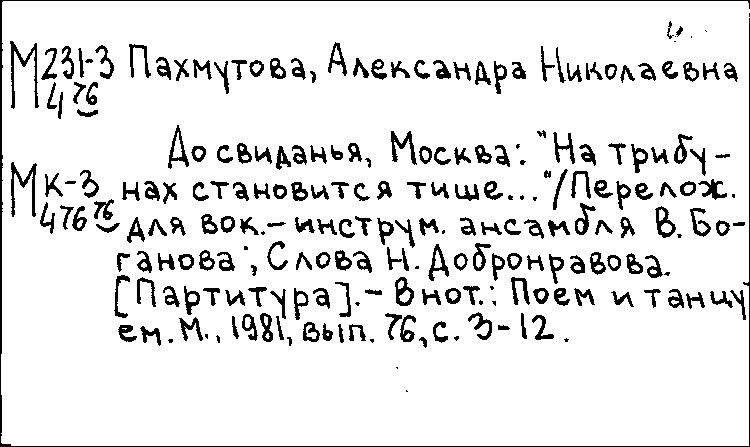 М231-3 Пахмутова, Александра Николаевна
4 76
До свиданья, Москва: "На трибу-
Мк-3 нах становится тише..."/Перелож.
476 76 для вок.-инструм. ансамбля В. Бо-
ганова; Слова Н. Добронравова.
[Партитура].-В нот.: Поем и танцу
ем. М., 1981, вып. 76, с. 3-12.